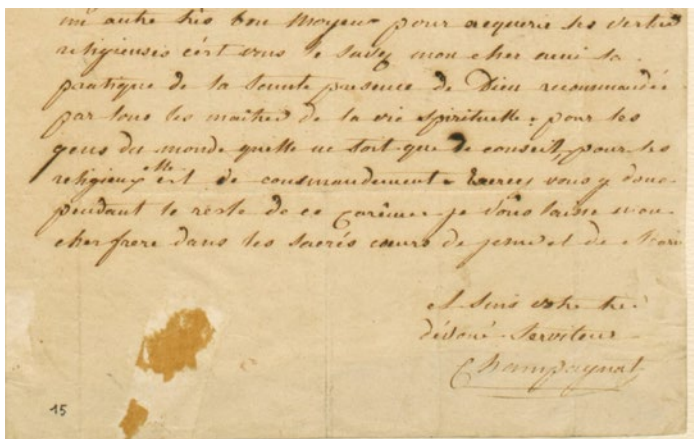 un autre très bon moyen pour aquerir les vertus
religieuses c'ért vous le savez mon cher ami la
pratique de la sainte presence de Dieu recommandée
par tous les maitres de la vie spirituelle. pour les
gens du monde quelle ne soit que de conseil, pour les
religieux elle est de commandement. vous y donc
pendant le reste de ce carême. je vous laisse mon
cher frere dans les sacrés cœurs de jesus et de Marie
et suis votre tres
dévoué serviteur
Champagnat
15